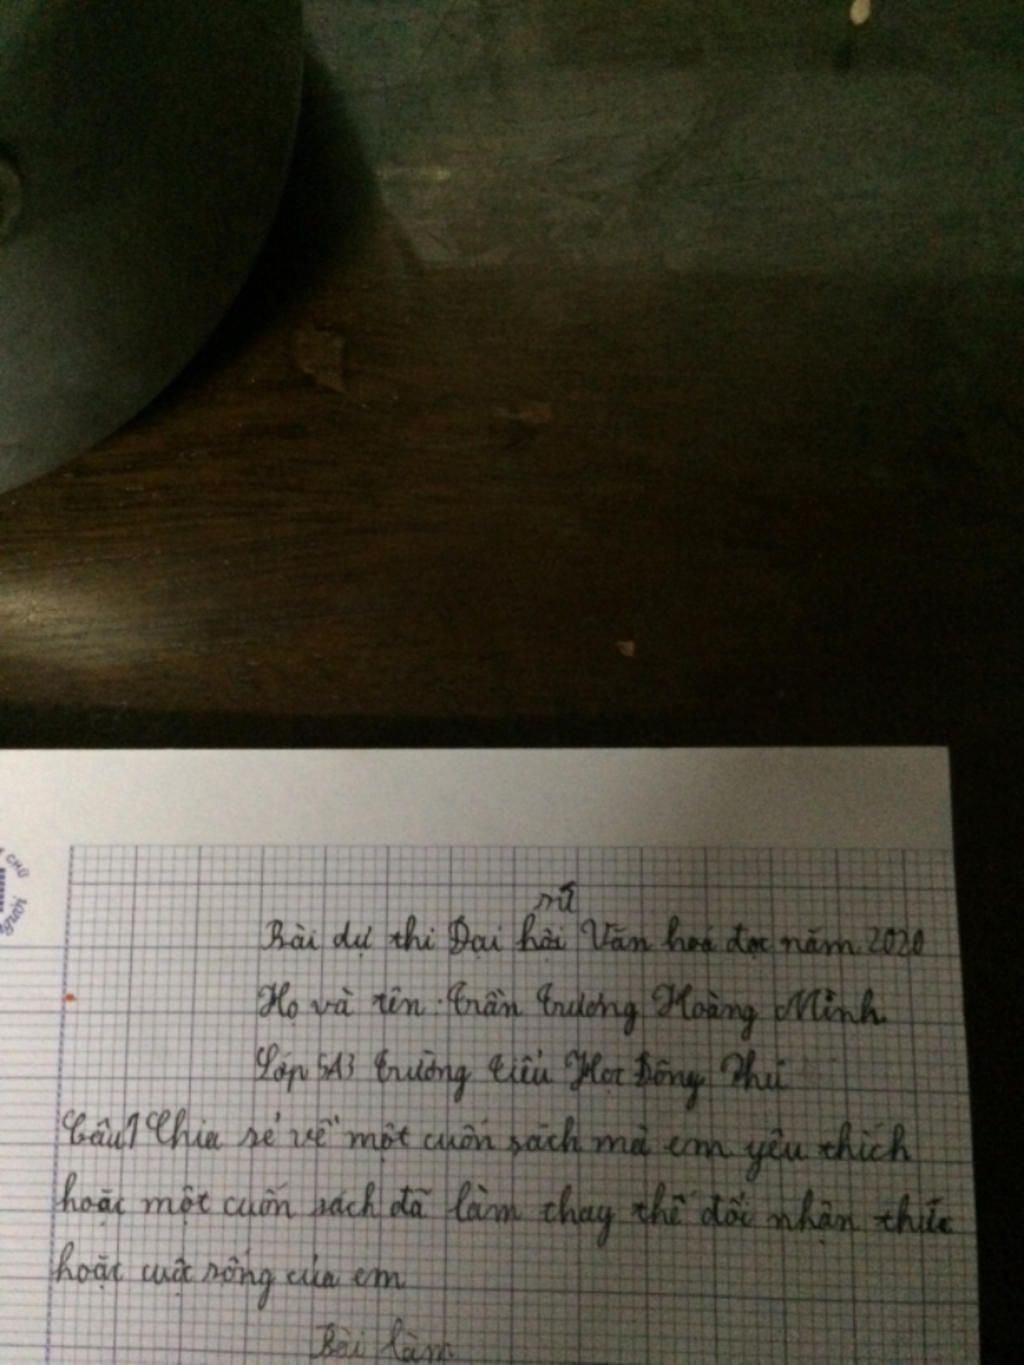 sứ
Bài dự thi Đại hội Văn hoá đọc năm 2020
Họ và tên: Trần Trương Hoàng Minh
Lớp 5A3 trường tiểu Học Đông Phú
Câu 1 Chia sẻ về một cuốn sách mà em yêu thích
hoặc một cuốn sách đã làm thay thế đổi nhận thức
hoặc cuộc sống của em
Bài làm
CHỮ
người